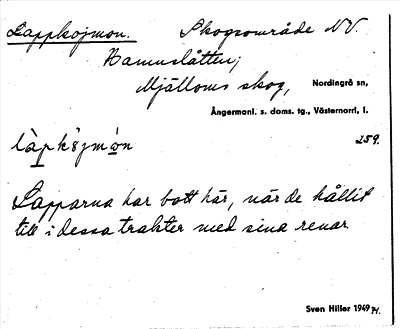 Lappkojmon. Skogsområde NV.
Hamnslåtten,
Mjälloms skog, Nordingrå sn,
Ångermanl. s. doms. tg., Västernorrl. l.
259.
Lapparna har bott här, när de hållit
till i dessa trakter med sina renar
Sven Hiller 1949